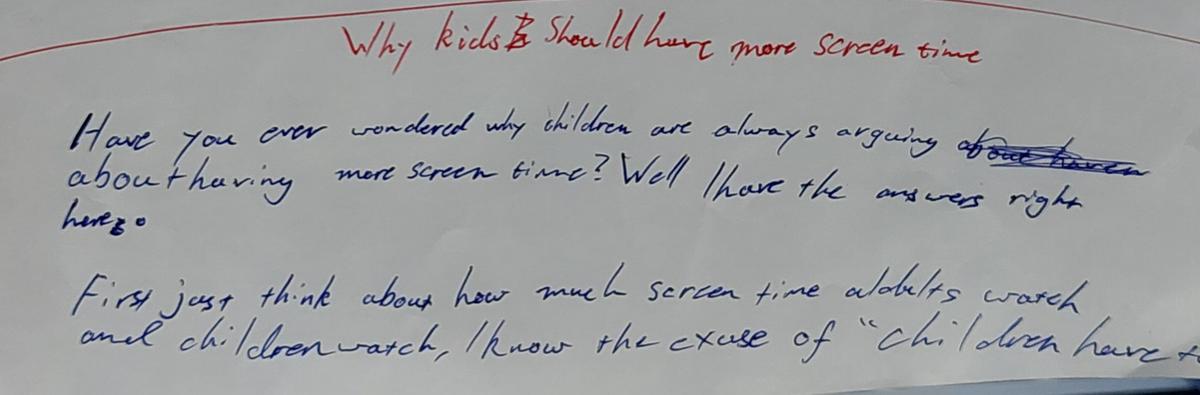 Why kids should have more screen time
Have you ever wondered why children are always arguing
about having more screen time? Well I have the answers right
here.
First just think about how much screen time aldults watch
and children watch, I know the excuse of "children have